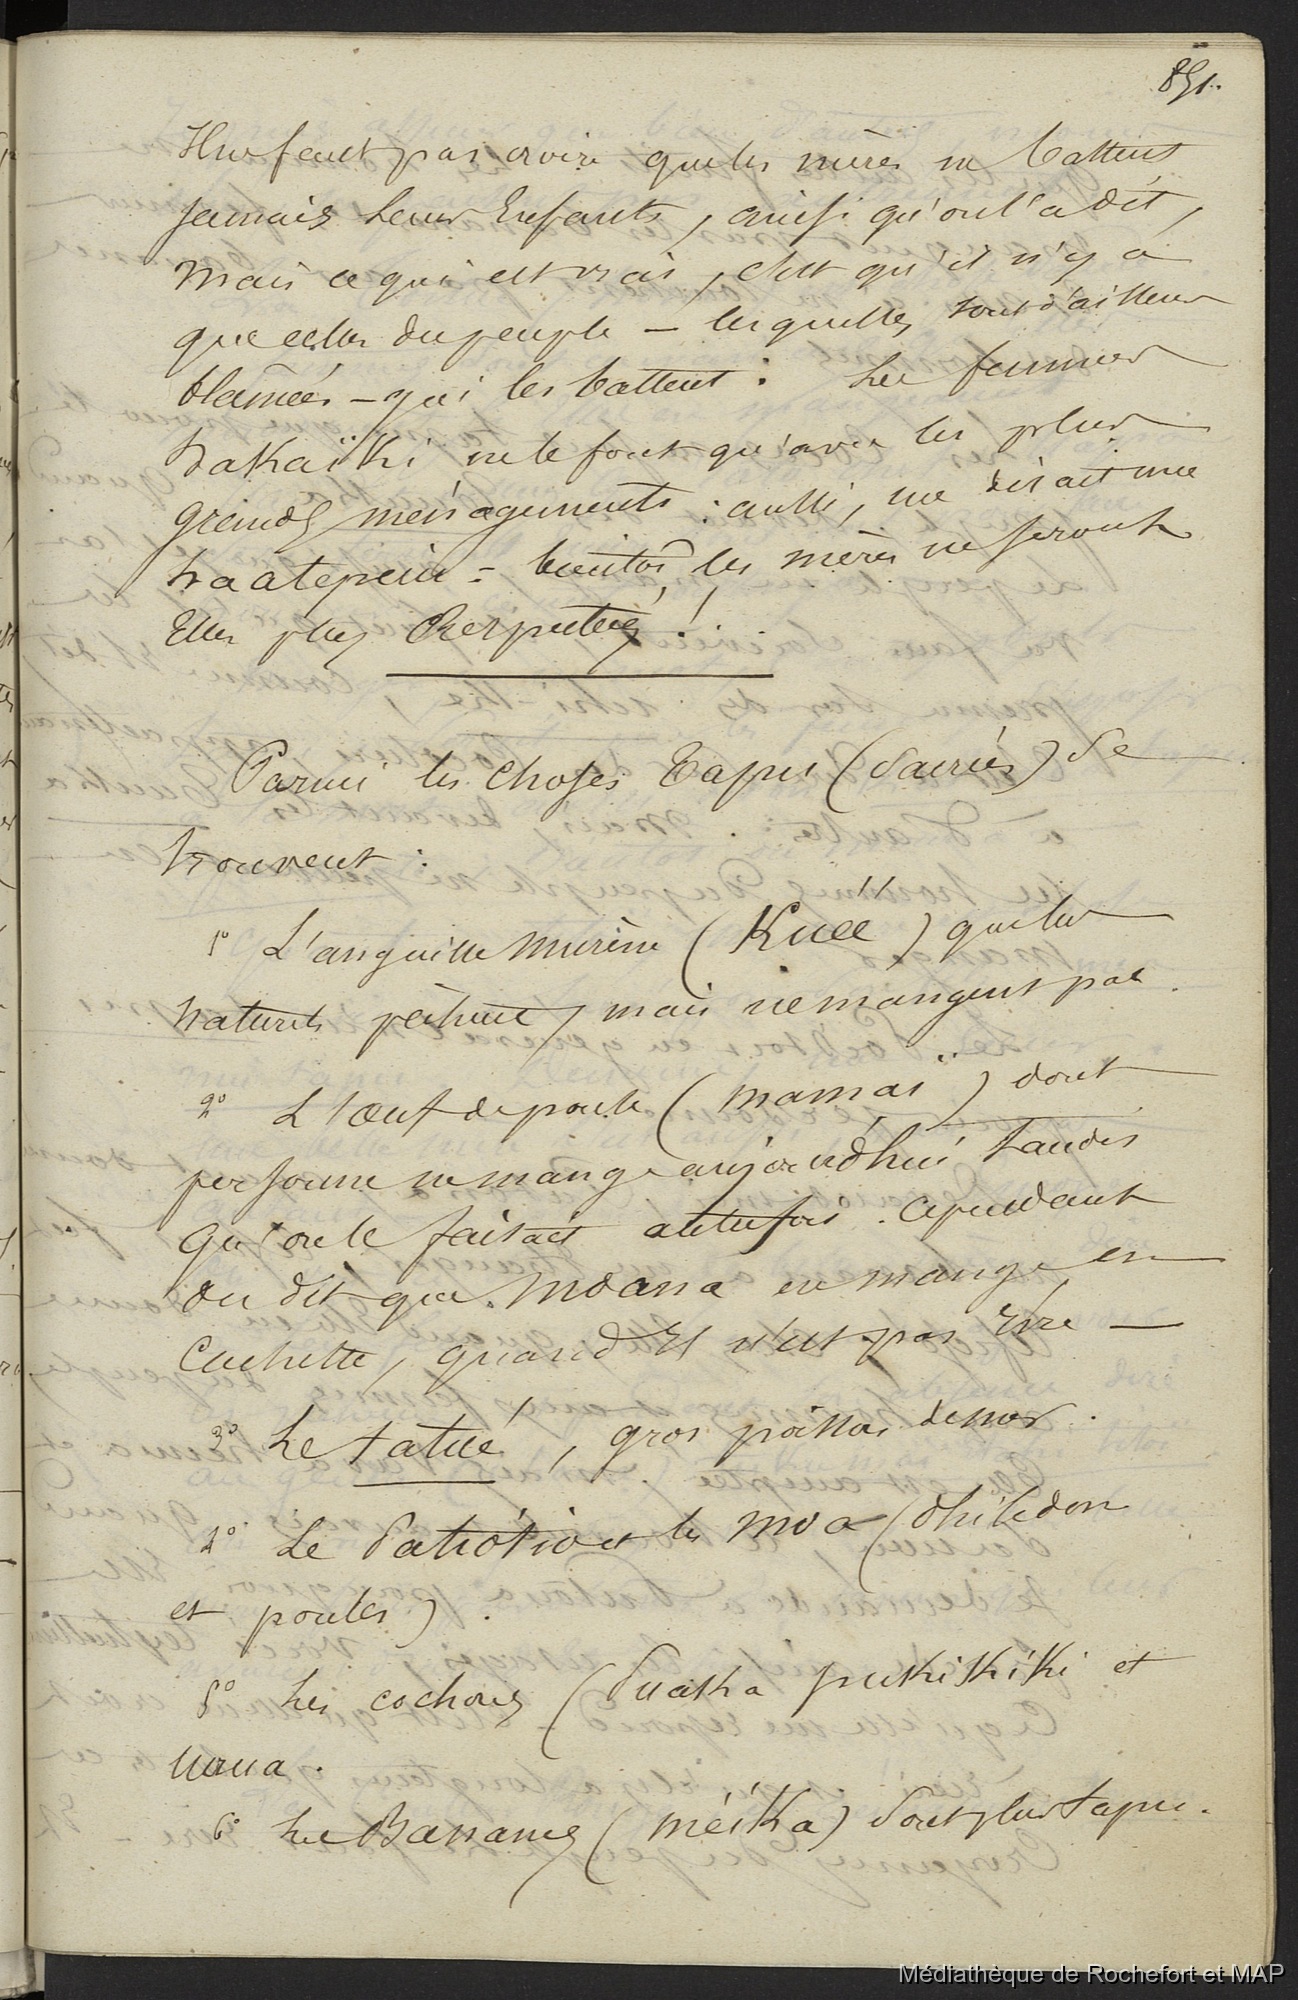 851.
Il ne faut pas croire que les mères ne battent
jamais leurs Enfants, ainsi qu'on l'a dit,
mais ce qui est vrai, c'est qu'il n'y a
que celles du peuple – lesquelles sont d'ailleurs
blâmées – qui les battent : Les femmes
hakaïki ne le font qu'avec les plus
grands ménagements : aussi, me disait une
haatepeiu = bientôt, les mères ne seront
Elles plus Respectées !...
Parmi les choses Tapu (sacrées) se
trouvent :
1º L'anguille murène (Kueé) que les
naturels pêchent, mais ne mangent pas.
2º L'œuf de poule (mamaï) dont
personne ne mange aujourd'hui tandis
qu'on le faisait autrefois. Cependant
on dit que Moana en mange, en
Cachette, quand Il n'est pas ivre –
3º Le tatué, gros poisson de mer.
4º Le Patiotio et les moa (Philedon
et poules).
5º Les cochons (Puaka pukikiki et
uoua.
6º Les Bananes (méika) sont plus tapu.
Médiathèque de Rochefort et MAP